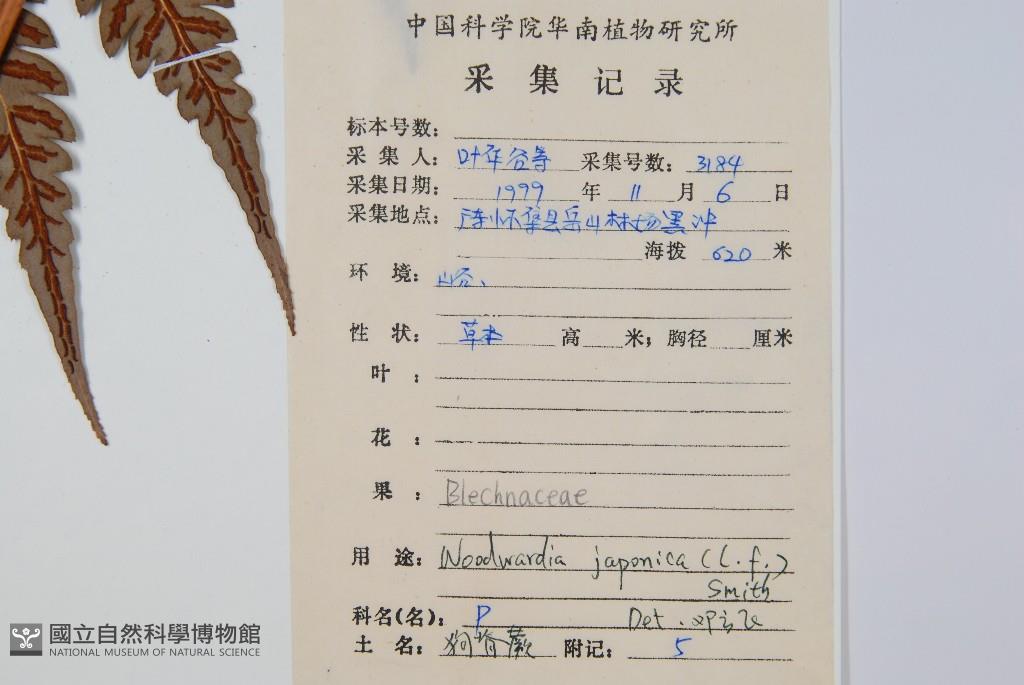 中国科学院华南植物研究所
采集记录
标本号数：
采集人：叶华谷等 采集号数：3184
采集日期：1999年11月6日
采集地点：怀集县岳山林场黑冲
海拨 620 米
环境：山谷、
性状：草本 高 米；胸径 厘米
叶：
花：
果：Blechnaceae
用途：Woodwardia japonica (L.f.)
Smith
科名(名)：P Det.
土名：狗脊蕨 附记：5
國立自然科學博物館
NATIONAL MUSEUM OF NATURAL SCIENCE